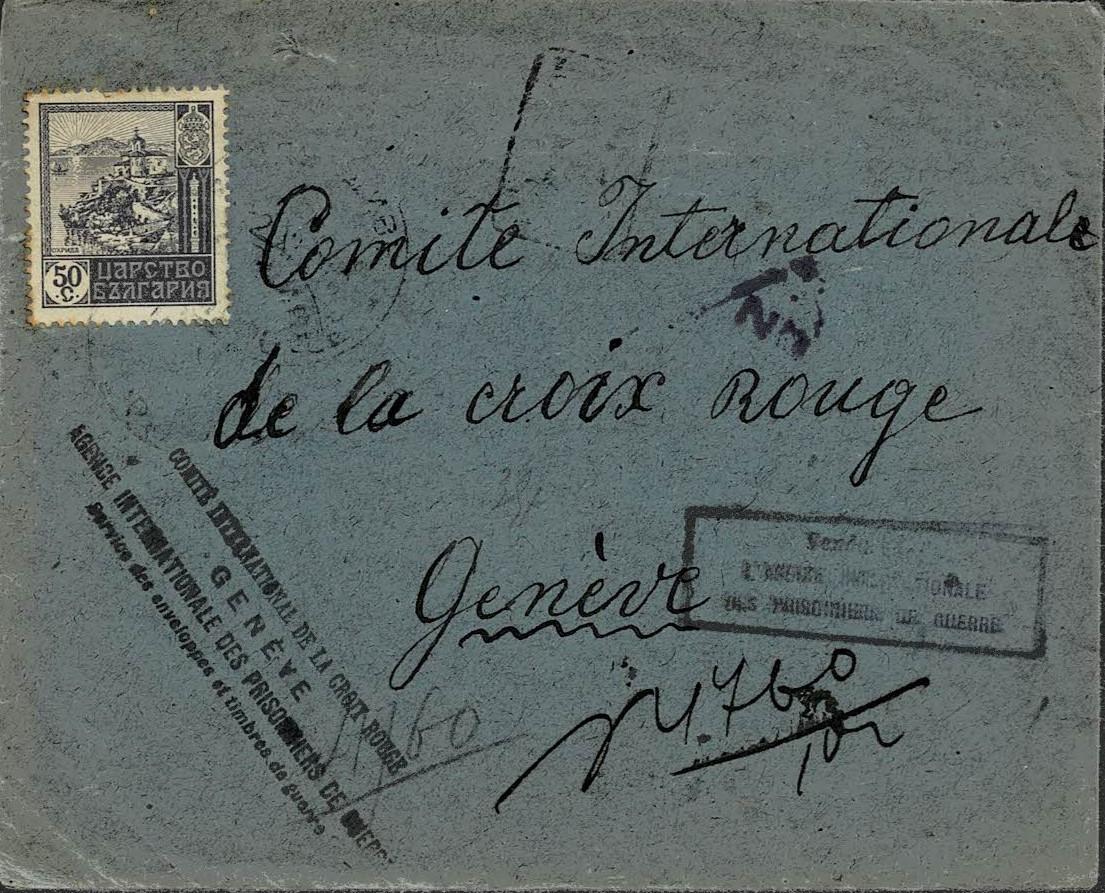 50
С.
ЦАРСТВО
БЪЛГАРИЯ
Comite Internationale
de la croix Rouge
Genève
COMITÉ INTERNATIONAL DE LA CROIX ROUGE
GENÈVE
AGENCE INTERNATIONALE DES PRISONNIERS DE GUERRE
Service des enveloppes et timbres de guerre
L'AGENCE INTERNATIONALE
DES PRISONNIERS DE GUERRE
4760